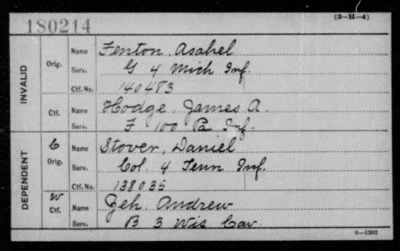 180214
(3-21-4)
INVALID
Orig.
Name Fenton, Asahel
Serv. G 4 Mich Inf.
Ctf. No. 140483
Ctf.
Name Hodge, James A.
Serv. F 100 Pa. Inf.
DEPENDENT
C
Orig.
Name Stover, Daniel
Serv. Col. 4 Tenn Inf.
Ctf. No. 138035
W
Ctf.
Name Zeh, Andrew
Serv. B 3 Wis Cav.